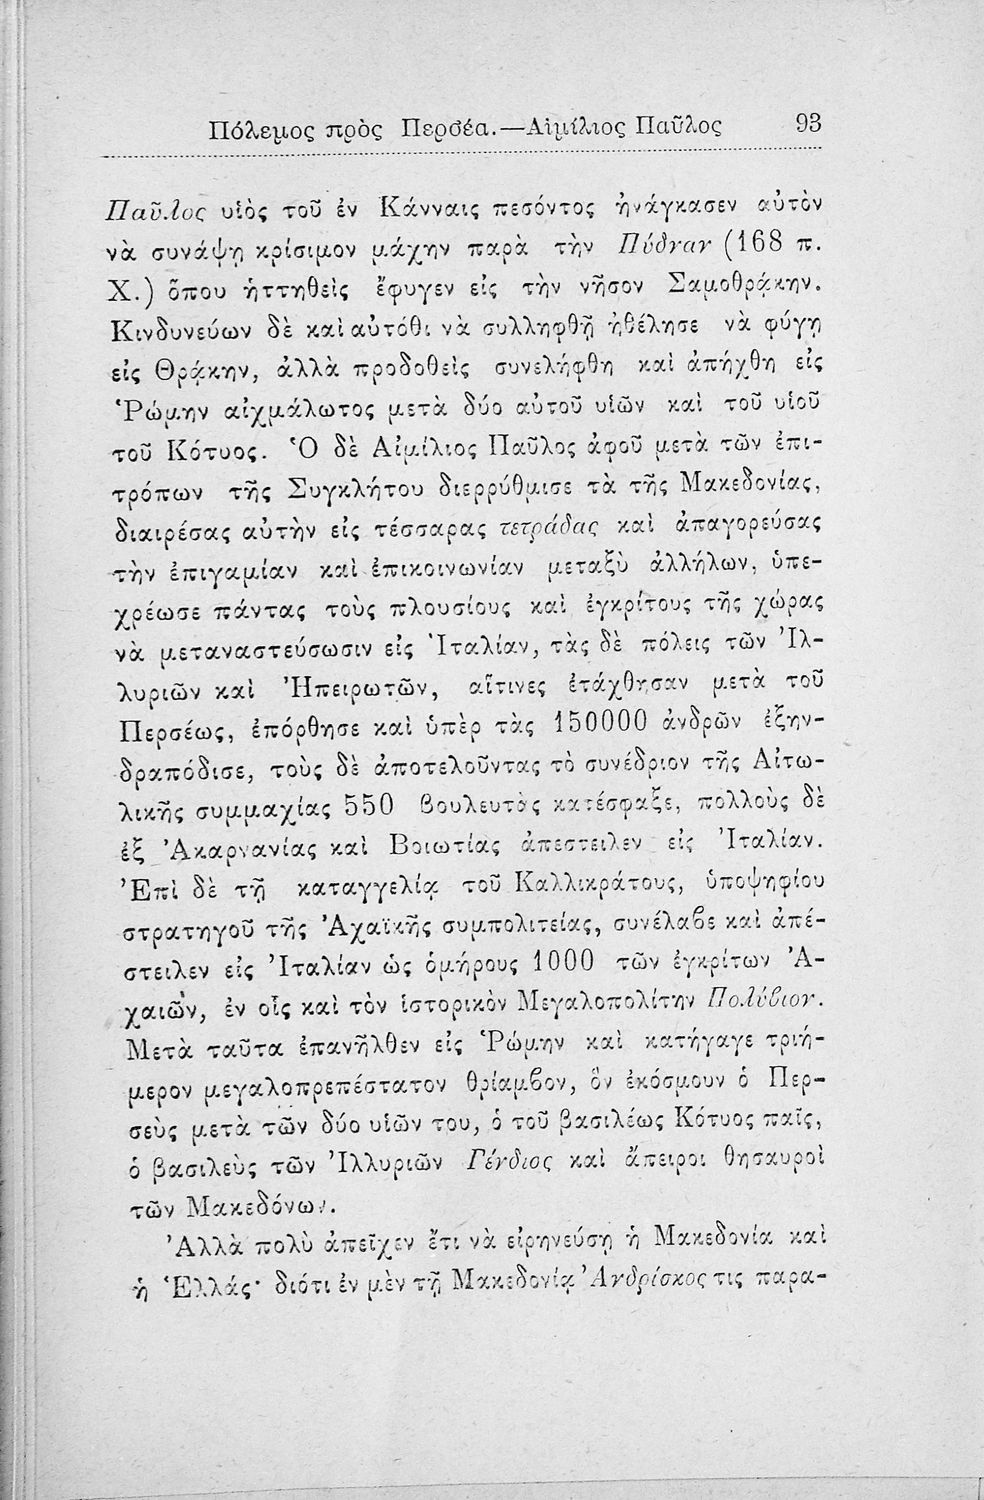 Πόλεμος πρὸς Περσέα.—Αἰμίλιος Παῦλος 93
Παῦλος υἱὸς τοῦ ἐν Κάνναις πεσόντος ἠνάγκασεν αὐτὸν
νὰ συνάψῃ κρίσιμον μάχην παρὰ τὴν Πύδναν (168 π.
Χ.) ὅπου ἡττηθεὶς ἔφυγεν εἰς τὴν νῆσον Σαμοθρᾴκην.
Κινδυνεύων δὲ καὶ αὐτόθι νὰ συλληφθῇ ἠθέλησε νὰ φύγῃ
εἰς Θρᾴκην, ἀλλὰ προδοθεὶς συνελήφθη καὶ ἀπήχθη εἰς
Ῥώμην αἰχμάλωτος μετὰ δύο αὐτοῦ υἱῶν καὶ τοῦ υἱοῦ
τοῦ Κότυος. Ὁ δὲ Αἰμίλιος Παῦλος ἀφοῦ μετὰ τῶν ἐπι-
τρόπων τῆς Συγκλήτου διερρύθμισε τὰ τῆς Μακεδονίας,
διαιρέσας αὐτὴν εἰς τέσσαρας τετράδας καὶ ἀπαγορεύσας
τὴν ἐπιγαμίαν καὶ ἐπικοινωνίαν μεταξὺ ἀλλήλων, ὑπε-
χρέωσε πάντας τοὺς πλουσίους καὶ ἐγκρίτους τῆς χώρας
νὰ μεταναστεύσωσιν εἰς Ἰταλίαν, τὰς δὲ πόλεις τῶν Ἰλ-
λυριῶν καὶ Ἠπειρωτῶν, αἵτινες ἐτάχθησαν μετὰ τοῦ
Περσέως, ἐπόρθησε καὶ ὑπὲρ τὰς 150000 ἀνδρῶν ἐξην-
δραπόδισε, τοὺς δὲ ἀποτελοῦντας τὸ συνέδριον τῆς Αἰτω-
λικῆς συμμαχίας 550 βουλευτὰς κατέσφαξε, πολλοὺς δὲ
ἐξ Ἀκαρνανίας καὶ Βοιωτίας ἀπεστειλεν εἰς Ἰταλίαν.
Ἐπὶ δὲ τῇ καταγγελίᾳ τοῦ Καλλικράτους, ὑποψηφίου
στρατηγοῦ τῆς Ἀχαϊκῆς συμπολιτείας, συνέλαβε καὶ ἀπέ-
στειλεν εἰς Ἰταλίαν ὡς ὁμήρους 1000 τῶν ἐγκρίτων Ἀ-
χαιῶν, ἐν οἷς καὶ τὸν ἱστορικὸν Μεγαλοπολίτην Πολύβιον.
Μετὰ ταῦτα ἐπανῆλθεν εἰς Ῥώμην καὶ κατήγαγε τριή-
μερον μεγαλοπρεπέστατον θρίαμβον, ὃν ἐκόσμουν ὁ Περ-
σεὺς μετὰ τῶν δύο υἱῶν του, ὁ τοῦ βασιλέως Κότυος παῖς,
ὁ βασιλεὺς τῶν Ἰλλυριῶν Γένθιος καὶ ἄπειροι θησαυροὶ
τῶν Μακεδόνων.
Ἀλλὰ πολὺ ἀπεῖχεν ἔτι νὰ εἰρηνεύσῃ ἡ Μακεδονία καὶ
ἡ Ἑλλάς· διότι ἐν μὲν τῇ Μακεδονίᾳ Ἀνδρίσκος τις παρα-